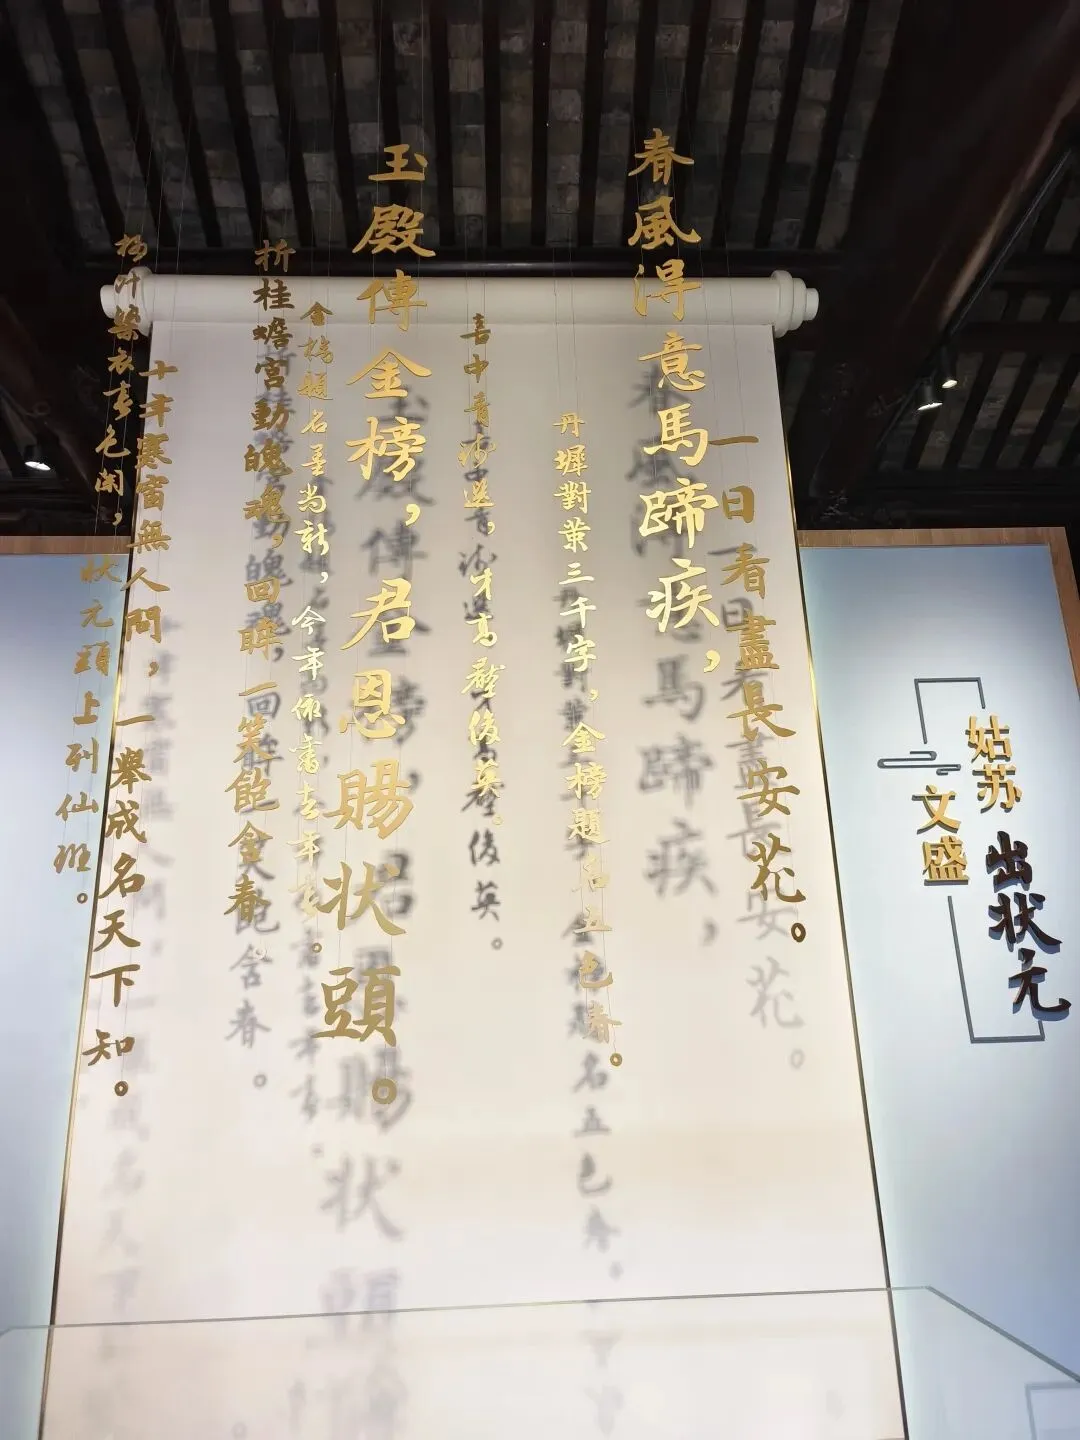 春風得意馬蹄疾，
一日看盡長安花。
丹墀對策三千字，金榜題名五色春。
喜中青錢選，才高壓俊英。
玉殿傳金榜，君恩賜狀頭。
金榜題名墨尚新，今年依舊去年春。
折桂蟾宮動魄魂，回眸一笑飽含春。
十年寒窗無人問，一舉成名天下知。
柳汁染衣春色閑，狀元頭上列仙班。
姑苏
文盛
出状元